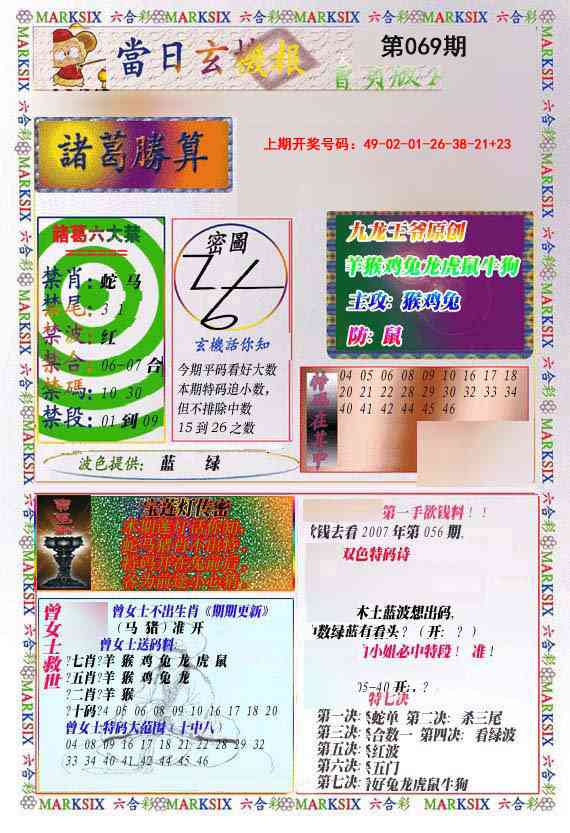 MARKSIX 六合彩 MARKSIX 六合彩 MARKSIX 六合彩 MARKSIX 六合彩
當日玄機报
第069期
諸葛勝算
上期开奖号码：49-02-01-26-38-21+23
諸葛六大禁
禁肖：蛇 马
禁尾：3 1
禁波：红
禁合：06-07 合
禁碼：10 30
禁段：01 到 09
密圖
玄機話你知
今期平码看好大数
本期特码追小数，
但不排除中数
15 到 26 之数
九龙王爷原创
羊猴鸡兔龙虎鼠牛狗
主攻：猴鸡兔
防：鼠
特码在其中
04 05 06 08 09 10 16 17 18
20 21 22 28 29 30 32 33 34
40 41 42 44 45 46
波色提供： 蓝 绿
宝莲灯传密
曾女士救世
曾女士不出生肖《期期更新》
（马 猪）准 开
曾女士送码料
?七肖?羊 猴 鸡 兔 龙 虎 鼠
?五肖?羊 猴 鸡 兔 龙
?二肖?羊 猴
?十码?4 05 06 08 09 10 16 17 18 20
曾女士特码大范围（十中八）
04 08 09 16 17 18 21 22 28 29 32
33 34 40 41 42 44 45 46
第一手欲钱料！！
欠钱去看 2007 年第 056 期，
双色特码诗
木土蓝波想出码，
数绿蓝有看头？（开：？）
小姐必中特段！ 准！
05-40 开：，？
特七决
第一决：蛇单 第二决： 杀三尾
第三决：合数一 第四决： 看绿波
第五决：红波
第六决：五门
第七决：好兔龙虎鼠牛狗
MARKSIX 六合彩 MARKSIX 六合彩 MARKSIX 六合彩 MARKSIX 六合彩